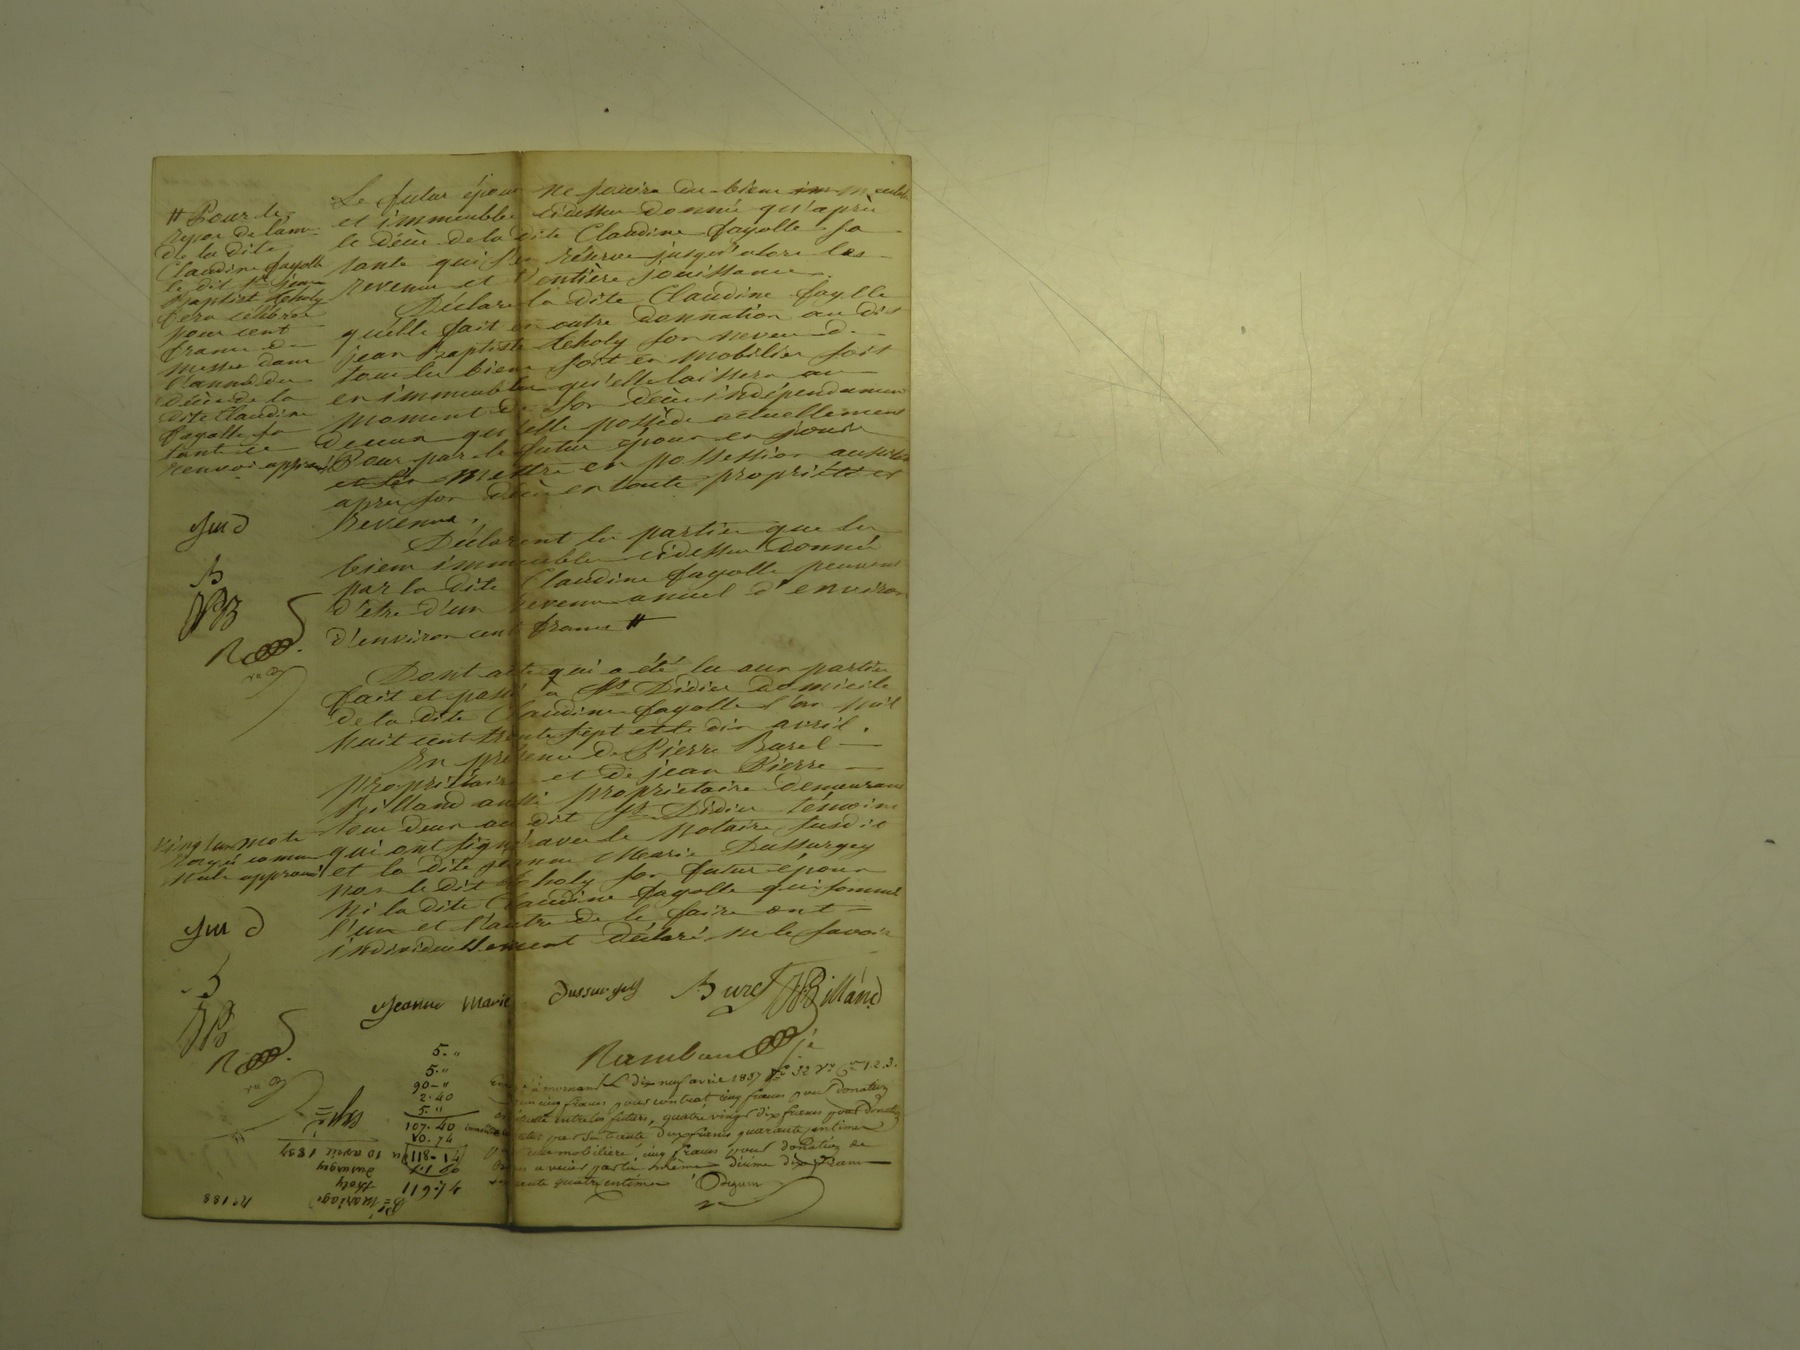 Le futur époux ne jouira des biens meubles
et immeubles cidessus donnés qu'après
le décès de la dite Claudine fayolle sa
tante qui s'en réserve jusqu'alors les
revenus et l'entière jouissance.
Déclare la dite Claudine fayolle
quelle fait en outre donnation au dit
jean Baptiste tholy son neveu de
tous les biens soit en mobilier soit
en immeubles qu'elle laissera au
moment de son décès indépendament
de ceux qu'elle possède actuellement
Pour par le futur époux en jouir
et s'en mettre en possession aussitot
après son décès en toute propriété et
Revenus.
Déclarent les parties que les
biens immeubles cidessus donnés
par la dite Claudine fayolle peuvent
d'etre d'un revenu anuel d'environ
d'environ cent francs #
# Pour le
repos de l'ame
de la dite
Claudine fayolle
le dit sr jean
Baptiste tholy
fera célébrer
pour cent
francs de
messes dans
l'année du
décès de la
dite Claudine
fayolle sa
tante
renvoi approuvé
jm d
B
JPB
R
Dont acte qui a été lu aux parties
fait et passé à St Didier domicile
de la dite Claudine fayolle l'an mil
huit cent trente sept et le dix avril.
En présence de Pierre Burel
propriétaire et de jean Pierre
Billand aussi propriétaire demeurant
tous deux au dit St Didier témoins
qui ont signé avec le Notaire susdit
et la dite jeanne Marie Dussurgey
non le dit tholy son futur époux
ni la dite Claudine fayolle qui sommés
l'un et l'autre de le faire ont
individuellement déclaré ne le savoir
Vingt un mots
Rayés comme
Nuls approuvé
jm d
B
JPB
R
jeanne marie dussurgey Burel JPBilland
Rambaud
5. "
5. "
90 - "
2. 40
5. "
107. 40
10. 74
118. 14
à mornant le dix neuf avril 1837 fo 32 Vo Ces 1.2.3.
cinq francs pour contrat cinq francs pour donation
entre les futurs, quatre vingt dix francs pour donation
par sa tante deux francs quarante centimes
mobilière, cinq francs pour donation de
biens a venir partie même décime dix francs
soixante quatorze centimes
No 188
mariage
tholy
dussurgey
10 avril 1837